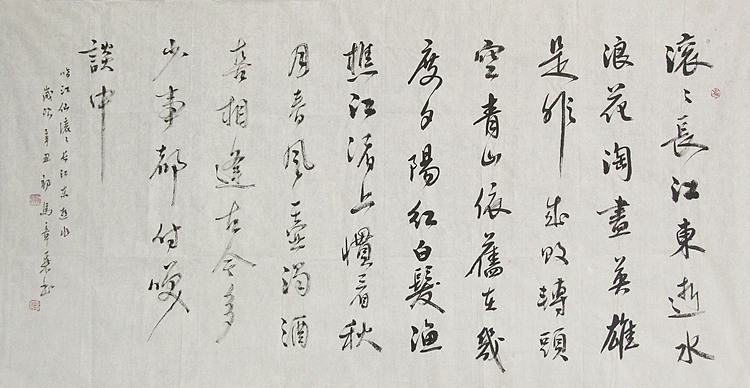 滚〻長江東逝水
浪花淘盡英雄
是非成敗轉頭
空青山依舊在幾
度夕陽紅白髮漁
樵江渚上慣看秋
月春风一壺濁酒
喜相逢古今多
少事都付笑
談中
临江仙滚〻长江东逝水
歲次辛丑初馬章书